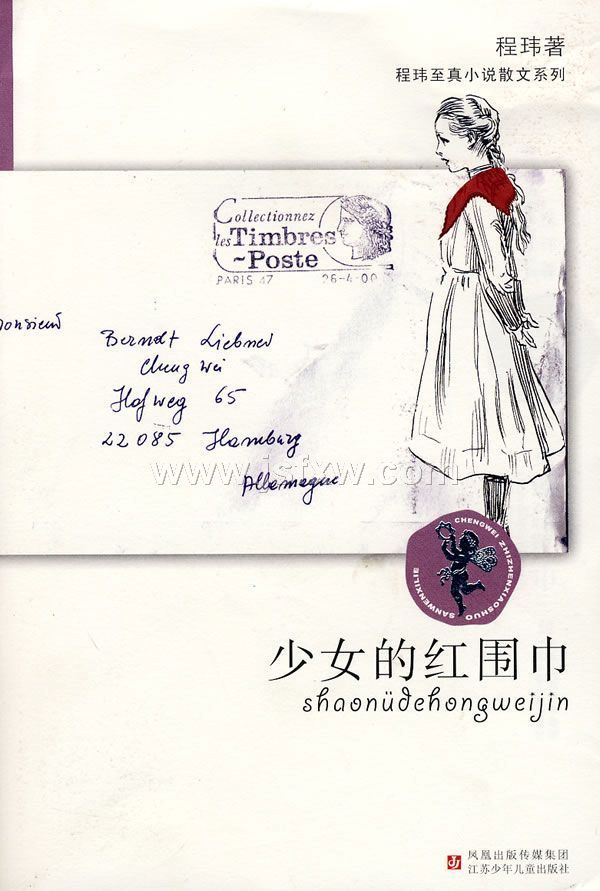 程玮著
程玮至真小说散文系列
Collectionnez
les Timbres
~Poste
PARIS 47 26-4-00
onsieur
Berndt Liebner
Cheng Wei
Hofweg 65
22085 Hamburg
Allemagne
www.jsfxw.com
CHENGWEI ZHIZHENXIAOSHUO SANWENXILIE
少女的红围巾
shaonüdehongweijin
凤凰出版传媒集团
江苏少年儿童出版社